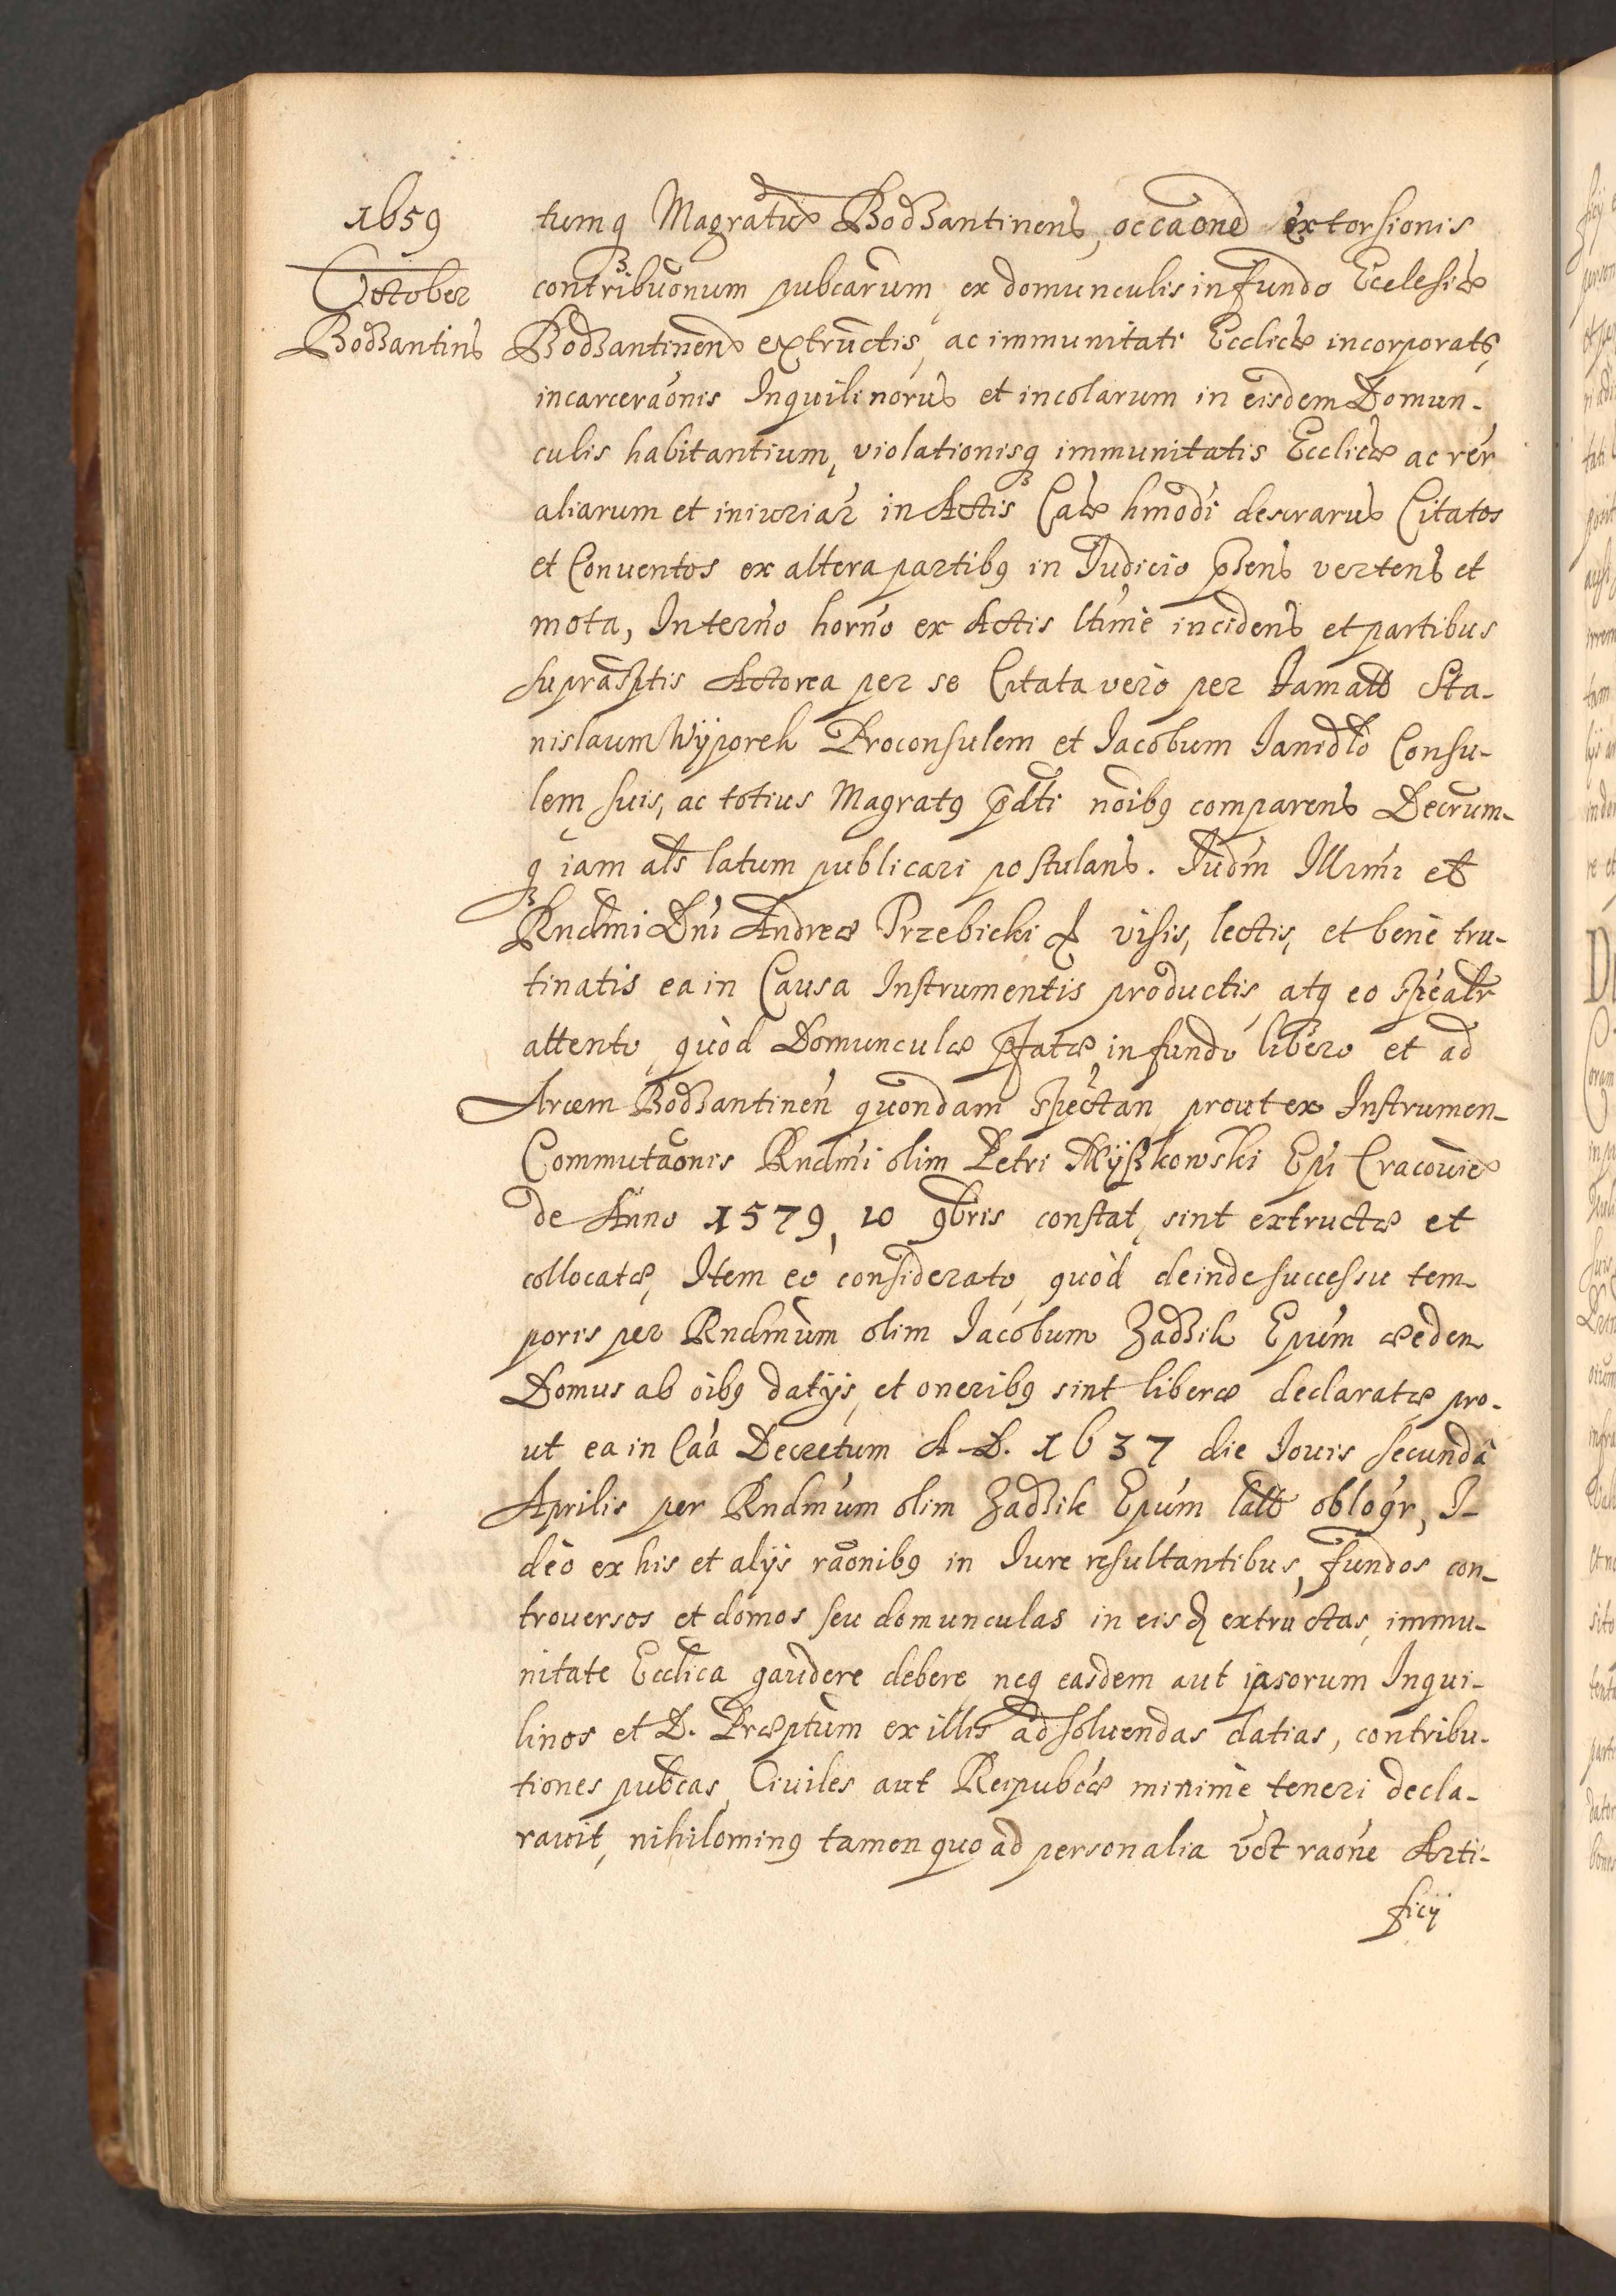 1659
October
Bodzantin
tumq Magratus Bodzantinens, occaone extorsionis
contribuonum pubcarum ex domunculis in fundo Ecclesiæ
Bodzantinen extructis, ac immunitati Ecclicæ incorporats,
incarceraonis Inquilinorus et incolarum in eisdem Domun-
culis habitantium, violationisq immunitatis Ecclicæ ac rer
aliarum et iniuriar in Actis Cæ hmodi descrarus Citatos
et Conuentos ex altera partibq in Judicio psens vertens et
mota, In termo horno ex Actis ltime incidens et partibus
suprasptis Actorea per se Citata vero per Famatt Sta-
nislaum Wÿporek Proconsulem et Jacobum Janidlo Consu-
lem suis, ac totius Magratq pdti noibq comparens Decrum-
q iam als latum publicari postulans. Judm Illrmi et
Rndmi Dni Andreæ Trzebicki & visis, lectis, et bene tru-
tinatis ea in Causa Instrumentis productis, atq eo spealr
attento, quòd Domunculæ pfatæ in fundo libero et ad
Arcem Bodzantinen quondam spectan prout ex Instrumen-
Commutaonis Rndmi olim Petri Mÿszkowski Epi Cracouieæ
de Anno 1579, 10 9bris constat, sint extructæ et
collocatæ, Item eo considerato, quòd deinde successu tem-
poris per Rndmum olim Jacobum Zadzik Epum æeden
Domus ab oibq datijs, et oneribq sint liberæ declaratæ pro-
ut ea in Caa Decretum A. D. 1637 die Jouis secunda
Aprilis per Rndmum olim Zadzik Epum latt obloqr, I-
deo ex his et alijs raonibq in Jure resultantibus, fundos con-
trouersos et domos seu domunculas in eisd extructas, immu-
nitate Ecclica gaudere debere, neq easdem aut ipsorum Inqui-
linos et D. Præptum ex illis ad soluendas datias, contribu-
tiones pubcas, Ciuiles aut Reipubcæ minime teneri decla-
rauit, nihilominq tamen quo ad personalia vct raone Arti-
ficij